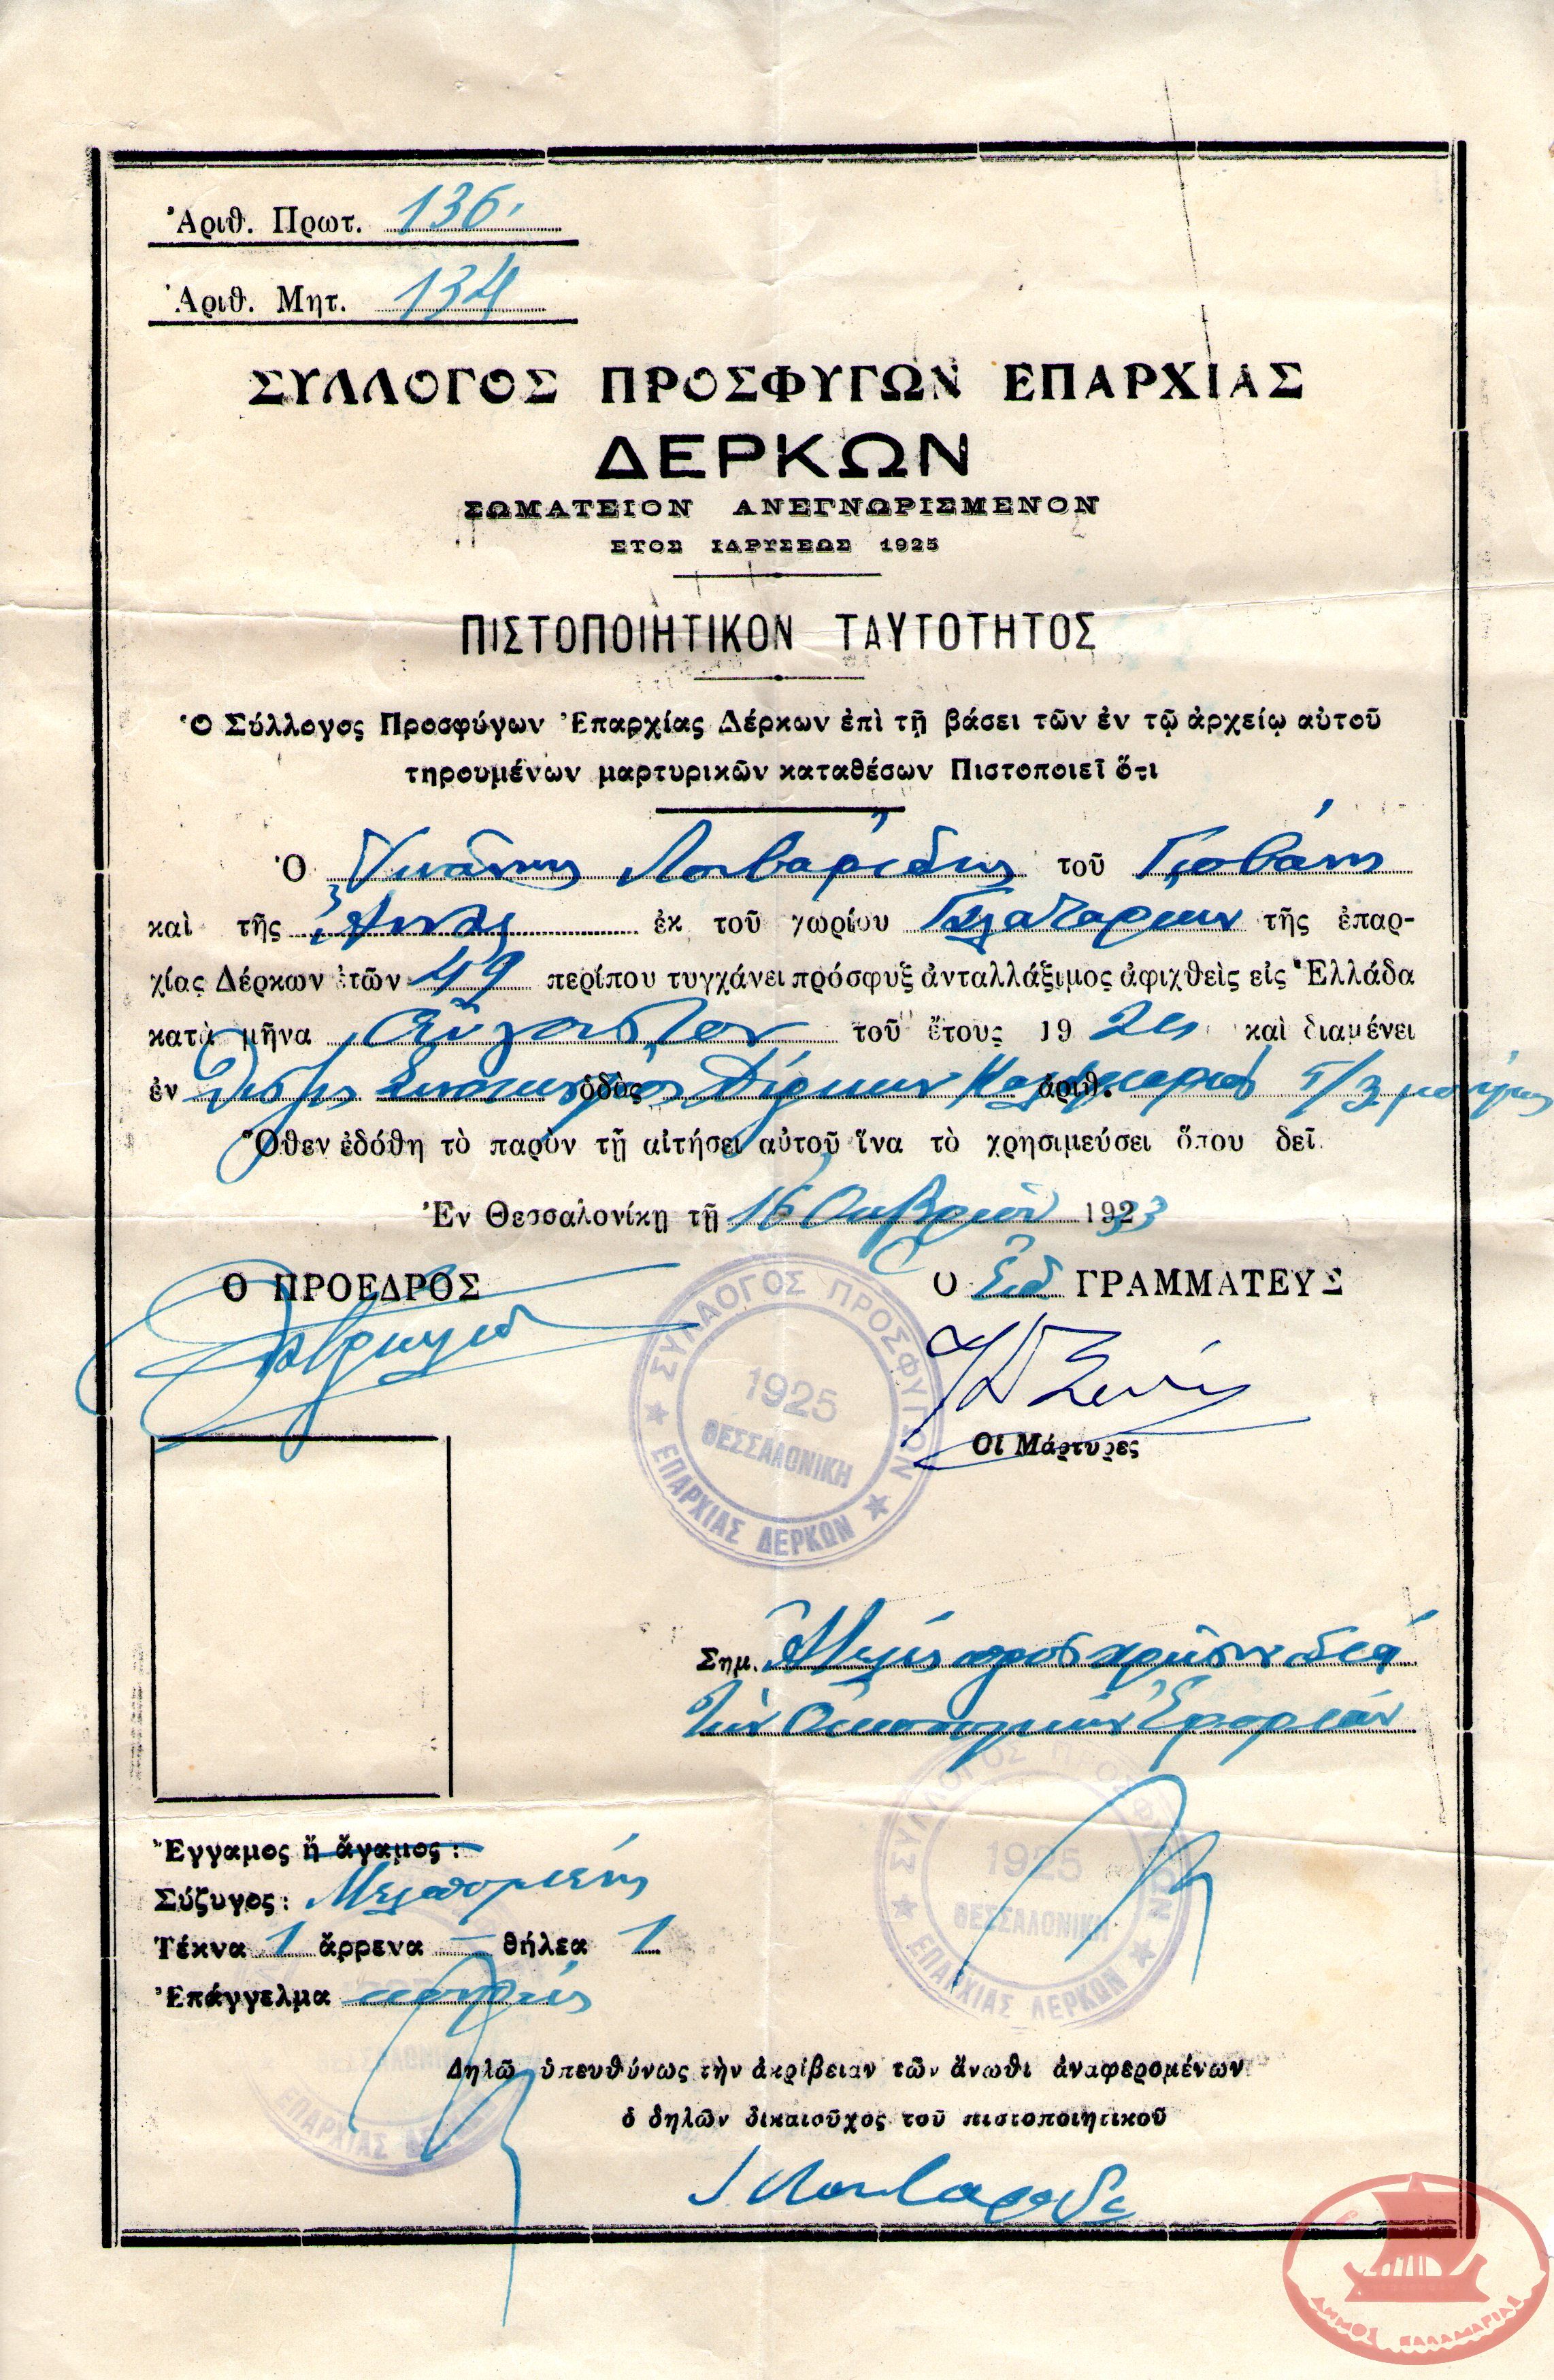 Ἀριθ. Πρωτ. 136.
Ἀριθ. Μητ. 134
ΣΥΛΛΟΓΟΣ ΠΡΟΣΦΥΓΩΝ ΕΠΑΡΧΙΑΣ
ΔΕΡΚΩΝ
ΣΩΜΑΤΕΙΟΝ ΑΝΕΓΝΩΡΙΣΜΕΝΟΝ
ΕΤΟΣ ΙΔΡΥΣΕΩΣ 1925
ΠΙΣΤΟΠΟΙΗΤΙΚΟΝ ΤΑΥΤΟΤΗΤΟΣ
Ὁ Σύλλογος Προσφύγων Ἐπαρχίας Δέρκων ἐπὶ τῇ βάσει τῶν ἐν τῷ ἀρχείῳ αὐτοῦ
τηρουμένων μαρτυρικῶν καταθέσων Πιστοποιεῖ ὅτι
Ὁ Λουβαρίδης τοῦ Γιοβάνη
καὶ τῆς Ἄννας ἐκ τοῦ χωρίου τῆς ἐπαρ-
χίας Δέρκων ἐτῶν 49 περίπου τυγχάνει πρόσφυξ ἀνταλλάξιμος ἀφιχθεὶς εἰς Ἑλλάδα
κατὰ μῆνα Αὔγουστον τοῦ ἔτους 19 καὶ διαμένει
ἐν Συνοικισμὸς ὁδὸς Δέρκων Καλαμαριᾶς ἀριθ.
Ὅθεν ἐδόθη τὸ παρὸν τῇ αἰτήσει αὐτοῦ ἵνα τὸ χρησιμεύσει ὅπου δεῖ.
Ἐν Θεσσαλονίκῃ τῇ 16 Ὀκτωβρίου 1933
Ο ΠΡΟΕΔΡΟΣ
Ο Εἰδ ΓΡΑΜΜΑΤΕΥΣ
ΣΥΛΛΟΓΟΣ ΠΡΟΣΦΥΓΩΝ
1925
ΘΕΣΣΑΛΟΝΙΚΗ
ΕΠΑΡΧΙΑΣ ΔΕΡΚΩΝ
Οἱ Μάρτυρες
Σημ. Ἀτελὲς πρὸς χρῆσιν διὰ
τὴν Οἰκονομικὴν Ἐφορίαν
ΣΥΛΛΟΓΟΣ ΠΡΟΣΦΥΓΩΝ
1925
ΘΕΣΣΑΛΟΝΙΚΗ
ΕΠΑΡΧΙΑΣ ΔΕΡΚΩΝ
Ἔγγαμος ἢ ἄγαμος:
Σύζυγος: Μελπομένη
Τέκνα 1 ἄρρενα — θήλεα 1
Ἐπάγγελμα
ΘΕΣΣΑΛΟΝΙΚΗ
ΕΠΑΡΧΙΑΣ ΔΕΡΚΩΝ
Δηλῶ ὑπευθύνως τὴν ἀκρίβειαν τῶν ἄνωθι ἀναφερομένων
ὁ δηλῶν δικαιοῦχος τοῦ πιστοποιητικοῦ
Ι Λουβαρίδης
ΔΗΜΟΣ ΚΑΛΑΜΑΡΙΑΣ